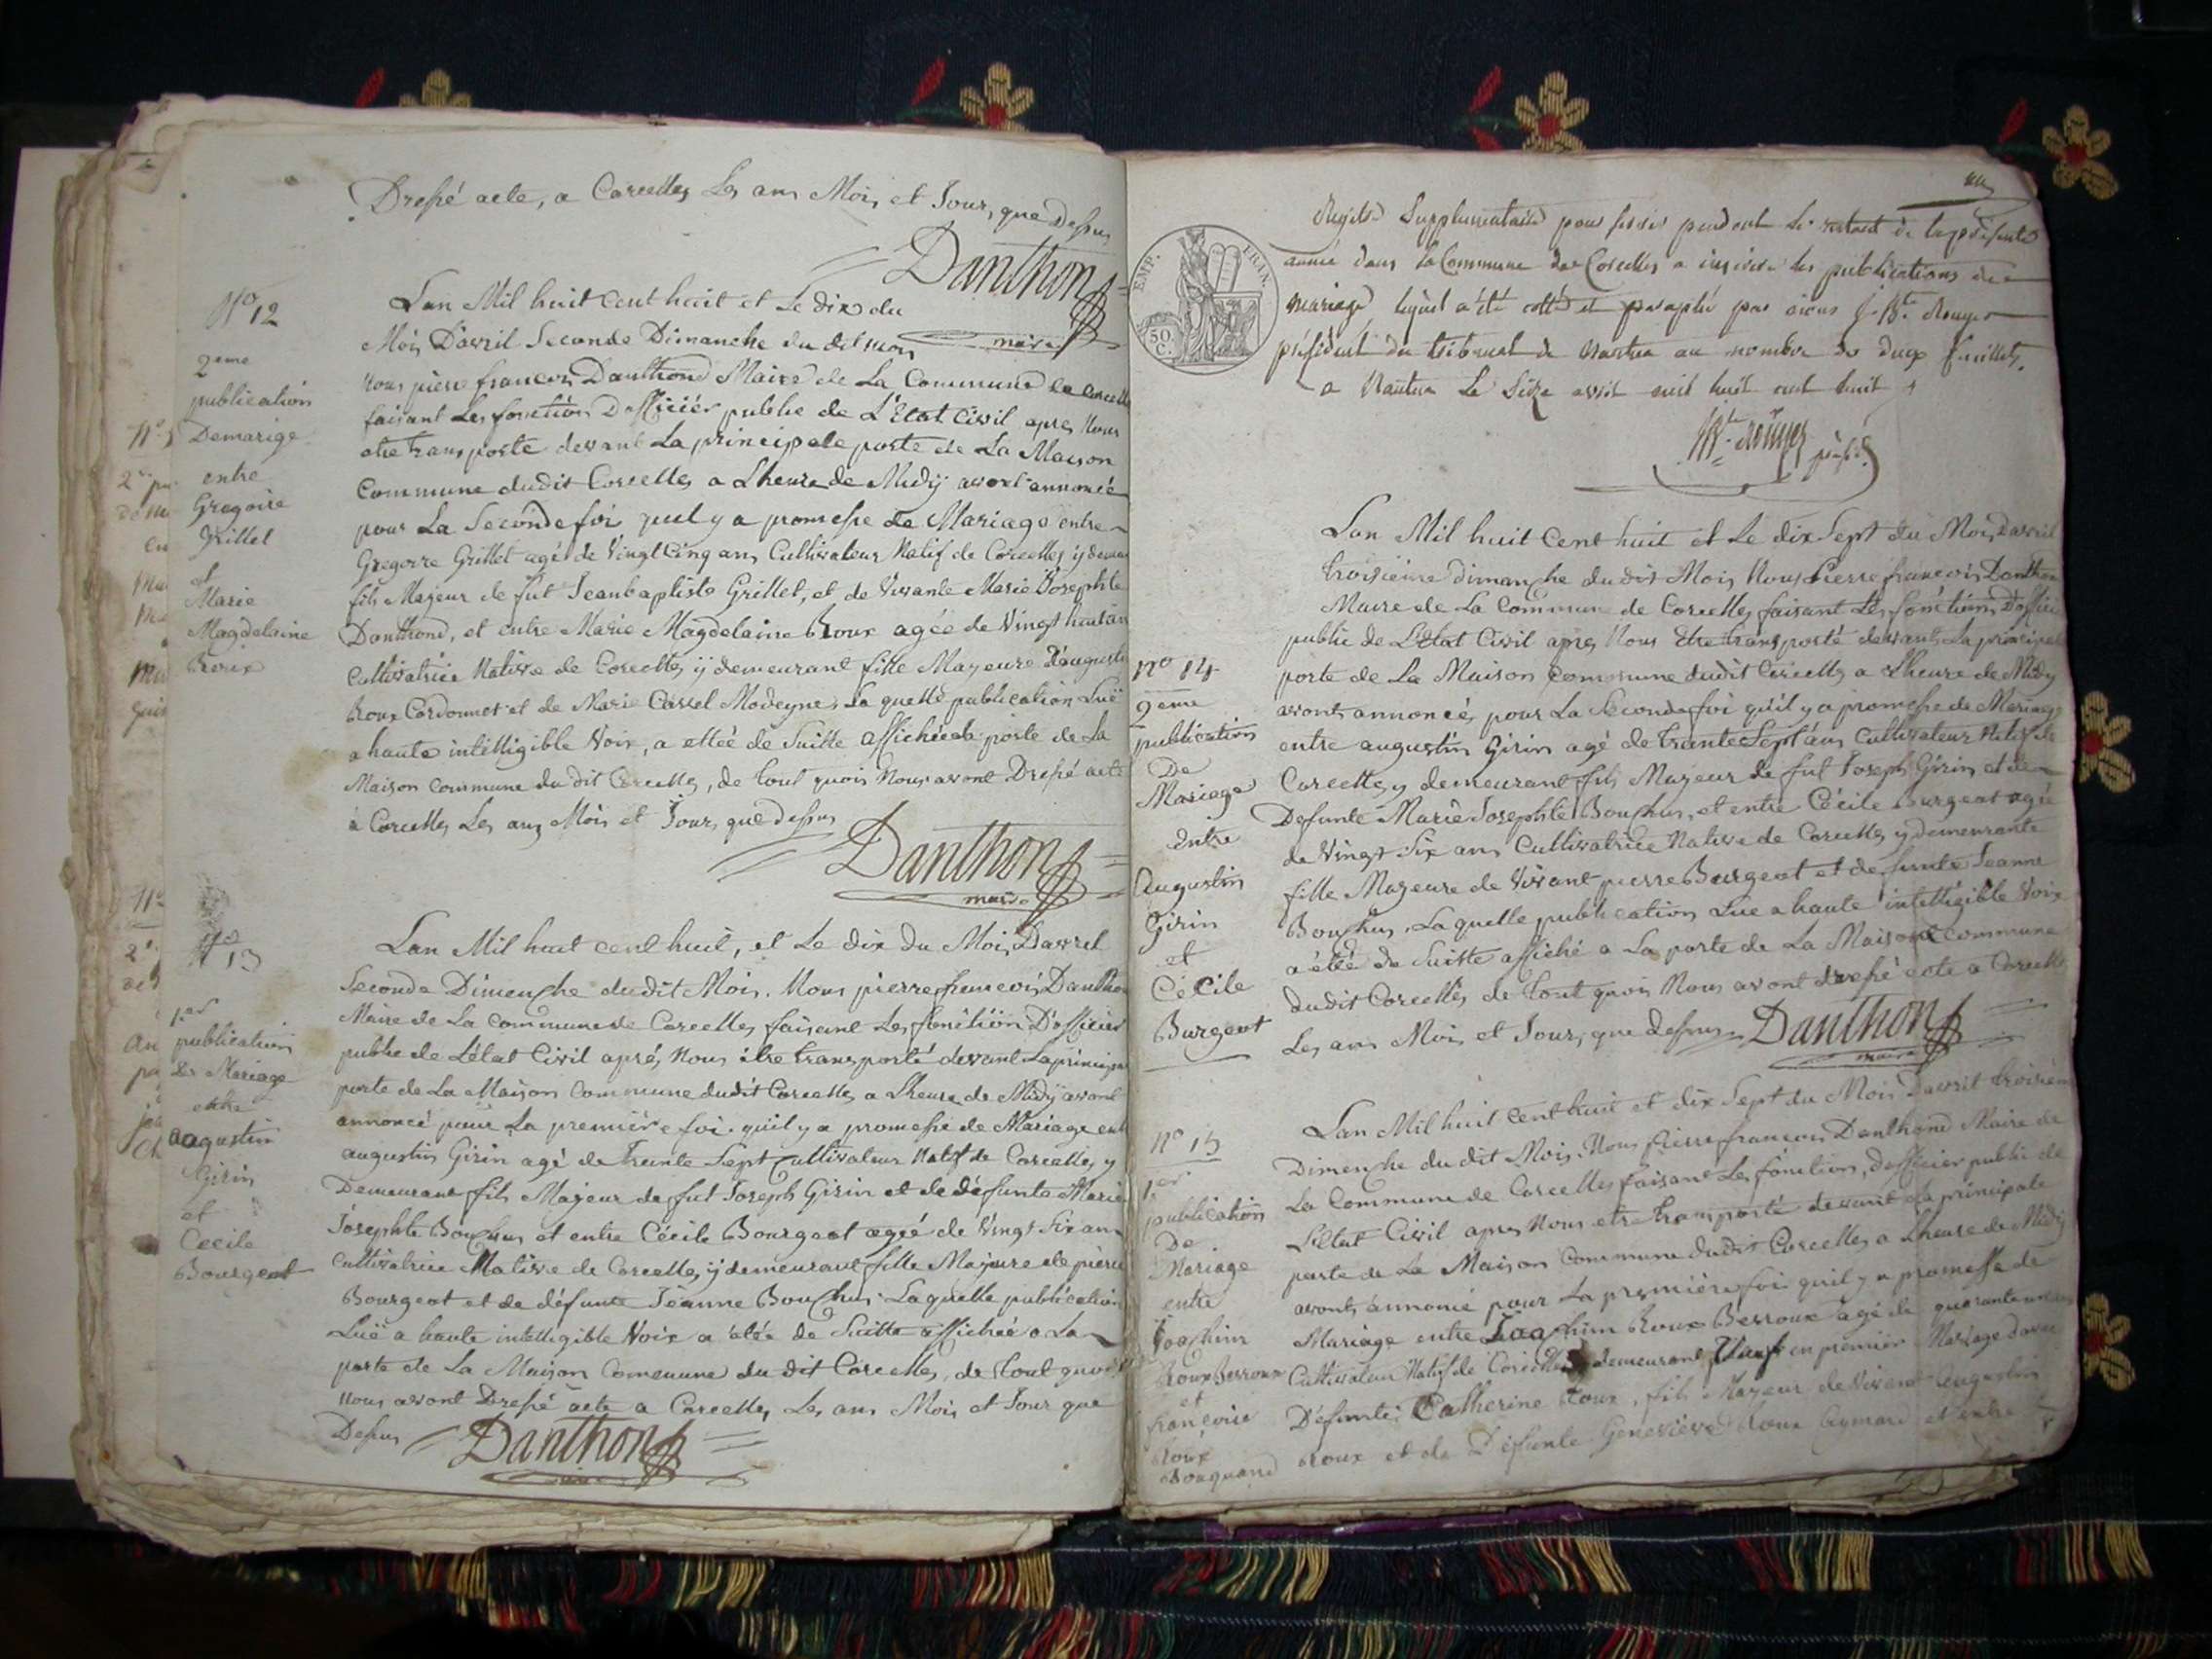 Dressé acte, a Corcelles Les ans Mois et Jours que Dessus
Danthon
maire
N° 12
2eme
publication
Demarige
entre
Gregoire
Grillet
et
Marie
Magdelaine
Roux
Lan Mil huit Cent huit et Le dix du
Mois Davril Seconde Dimanche du dit mois
Nous pierre francois Danthond Maire de La Commune de Corcelle
faisant Les fonction Dofficiér public de L'Etat Civil apres Nous
etre transporte devant La principale porte de La Maison
Commune dudit Corcelles a Lheure de Midÿ avont annoncé
pour La Seconde foi quil y a promesse de Mariage entre
Gregoire Grillet agé de Vingt Cinq ans Cultivateur Natif de Corcelles ÿ demeu
fils Majeur de fut Jeanbaptiste Grillet, et de Vivante Marie Josephte
Danthond, et entre Marie Magdelaine Roux agée de Vingt huit an
Cultivatrice Native de Corcelles ÿ demeurant fille Mayeure d'auguste
Roux Cordonnet et de Marie Carrel Modeyne, La quelle publication Luë
a haute intelligible Voix, a ettée de Suitte affichée porte de La
Maison Commune du dit Corcelles, de tout quoi Nous avont Dressé acte
à Corcelles Les ans Mois et Jours que dessus
Danthon
maire
N° 13
1er
publication
de Mariage
entre
augustin
Girin
et
Cecile
Bourgeot
Lan Mil huit cent huit, et Le dix Du Mois Davril
Seconde Dimenche dudit Mois. Nous pierre francois Danthon
Maire de La Commune de Corcelles faisant Les fonction D'officier
public de L'état Civil aprés Nous être transporté devant La principa
porte de La Maison Commune dudit Corcelles a Lheure de Midÿ avont
annoncé pour La premiére foi quil y a promesse de Mariage ent
augustin Girin agé de trente Sept Cultivateur Natif de Corcelles y
Demeurant fils Majeur de fut Joseph Girin et de défunte Marie
Josephte Bouchus et entre Cécile Bourgeot agée de Vingt Six an
Cultivatrice Native de Corcelles ÿ demeurant fille Majeure de pierre
Bourgeot et de défunte Jeanne Bouchus. Laquelle publication
Luë a haute intelligible Voix a étée de Suitte affichée a La
porte de La Maison Commune du dit Corcelles, de tout quoi
Nous avont Dressé acte a Corcelles Les ans Mois et Jour que
Dessus
Danthon
maire
EMP. FRAN.
50 C.
Supplementaire pour servir pendant le restant de la présente
année dans la Commune de Corcelles a inscrire les publications de
mariage lequel a été cotté et paraphé par nous J. Bte Rouyer
président du tribunal de Nantua au nombre de deux feuillets.
a Nantua Le Seize avril mil huit cent huit
N° 14
2eme
publication
De
Mariage
entre
Augustin
Girin
et
Cécile
Burgeot
Lan Mil huit Cent huit et Le dix Sept du Mois Davril
troisiéme dimanche dudit Mois Nous Pierre francois Danthon
Maire de La Commune de Corcelles faisant Les fonctions Doffici
public de L'Etat Civil apres Nous être transporté devant La principale
porte de La Maison Commune dudit Corcelles a Lheure de Midy
avont annoncé pour La Seconde foi quil y a promesse de Mariage
entre augustin Girin agé de trante Sept ans Cultivateur Natif de
Corcelles y demeurant fils Mayeur de fut Joseph Girin et de
Defunte Marie Josephte Bouchus, et entre Cécile Burgeot agée
de Vingt Six ans Cultivatrice Native de Corcelles y demeurante
fille Mayeure de Vivant pierre Burgeot et defunte Jeanne
Bouchus. Laquelle publication Lue a haute intelligible Voix
a étée de Suitte affiché a La porte de La Maison Commune
dudit Corcelles de tout quoi Nous avont dressé acte a Corcelles
Les ans Mois et Jour, que dessus
Danthon
maire
N° 15
1er
publication
De
Mariage
entre
Joachim
Roux Berroux
et
françoise
Roux
Bouquand
Lan Mil huit Cent huit et dix Sept du Mois Davril troisiém
Dimenche du dit Mois. Nous Pierre francois Danthond Maire de
La Commune de Corcelles faisant Les fonction, dofficier public de
L'Etat Civil apres Nous etre transporté devant La principale
porte de La Maison Commune dudit Corcelles a Lheure de Midy
avont annoncé pour La premiére foi quil y a promesse de
Mariage entre Joachim Roux Berroux agé de quarante
Cultivateur Natif de Corcelles demeurant Veuf en premier Mariage davec
Défunte Catherine Roux, fils Mayeur de Vivant Augustin
Roux et de Défunte Geneviéve Roux Aymard et entre